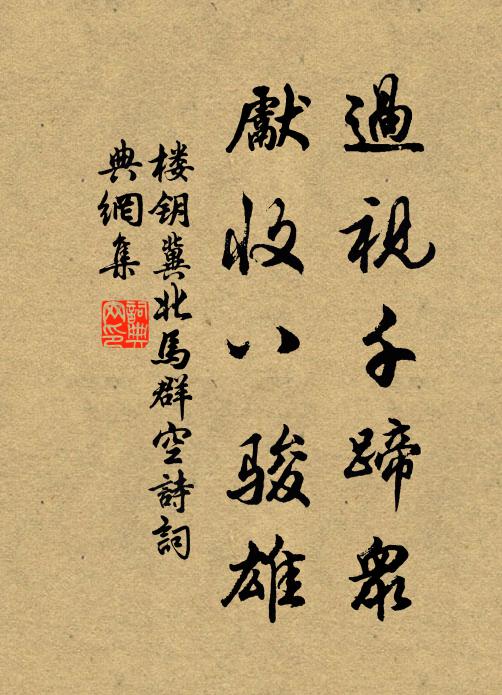 過視千蹄衆
獻收八駿雄
楼钥冀北馬群空詩詞
典網集
詞典
网印